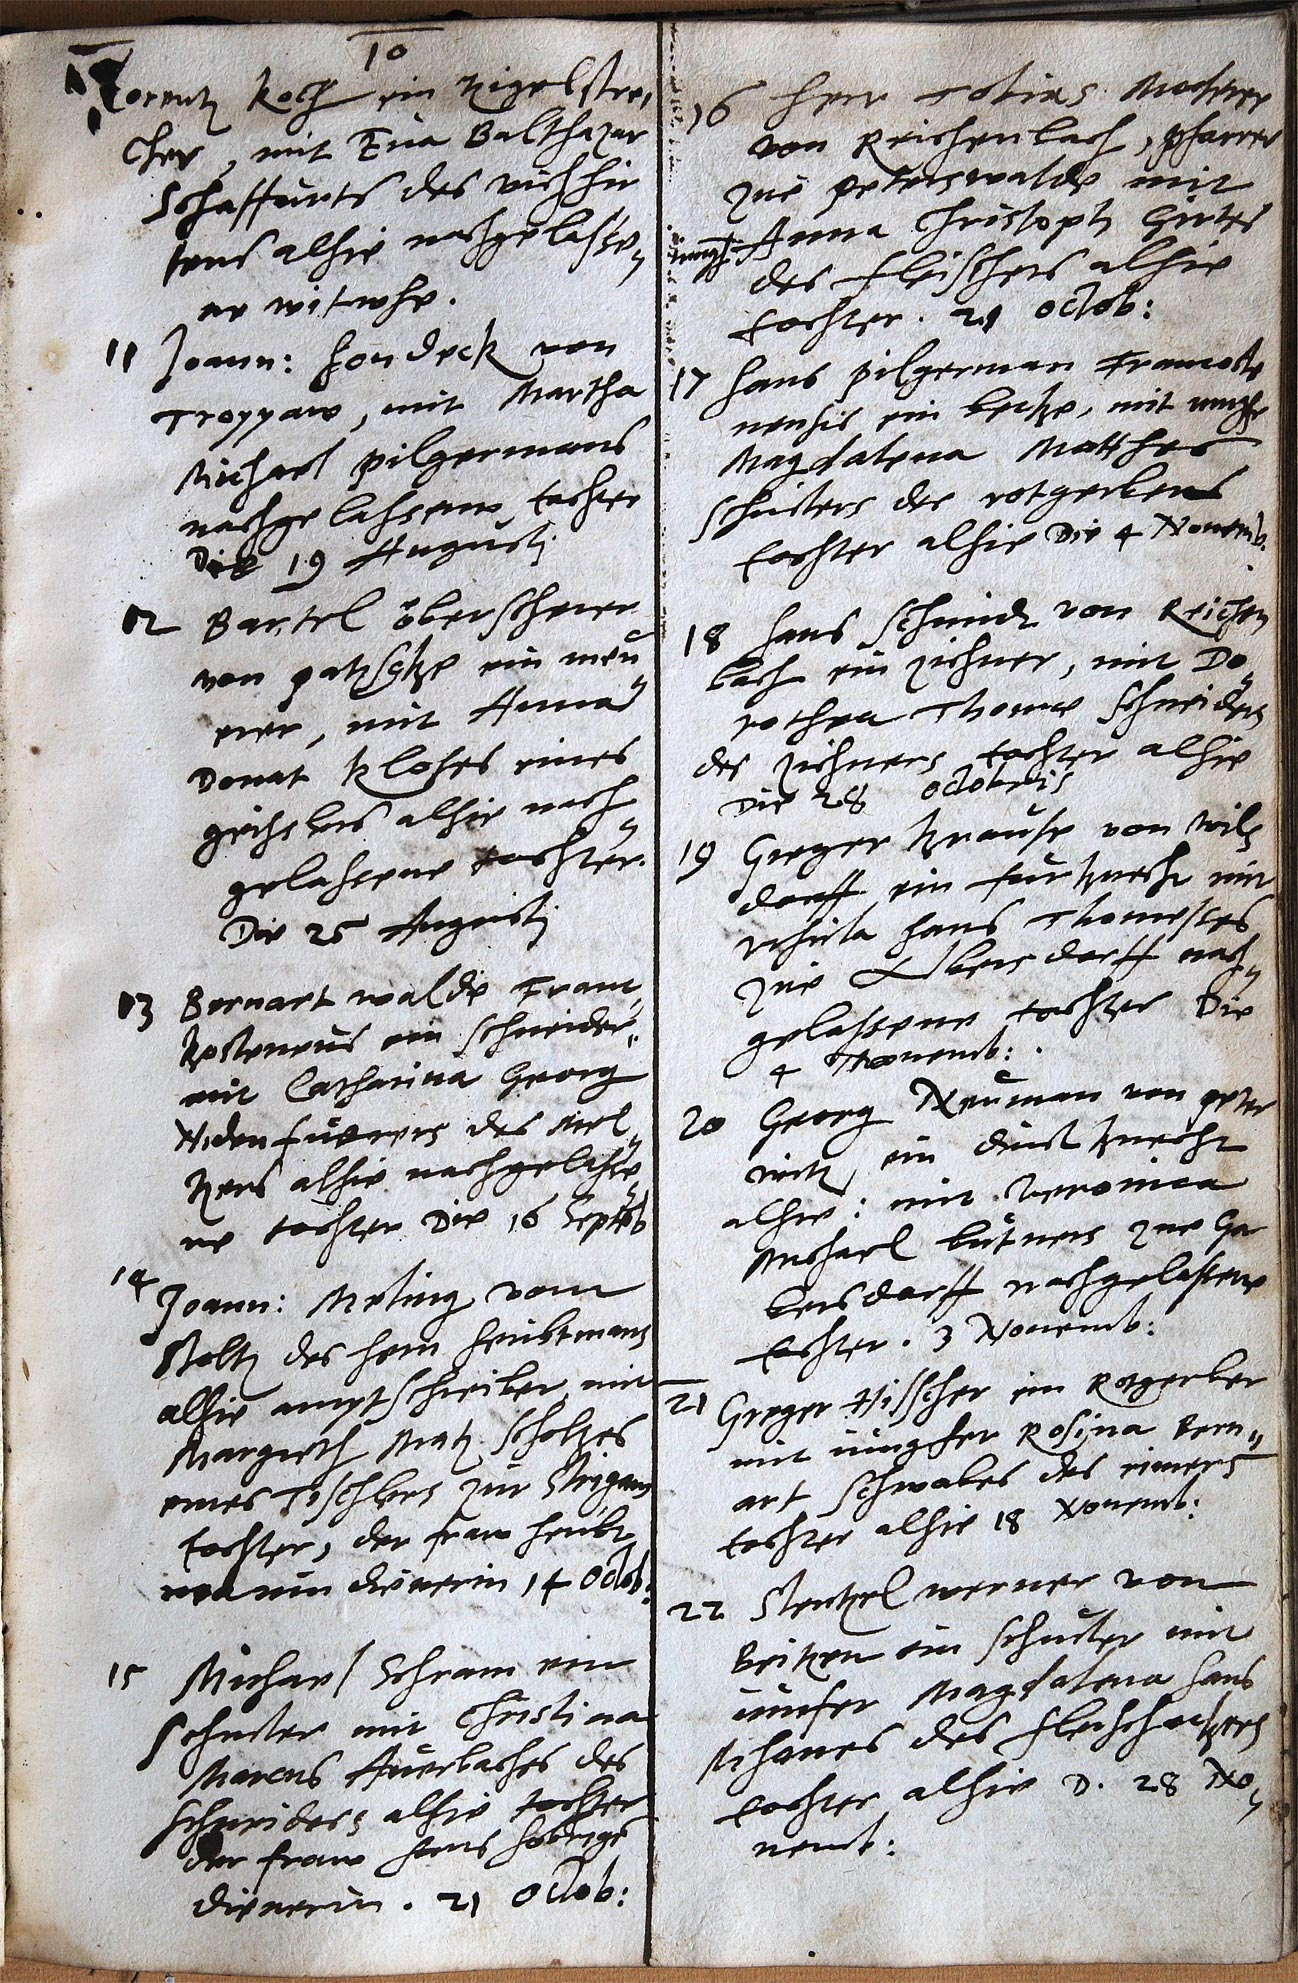 10
Lorentz Koch ein Zigelstrei,
cher, mit Eua Balthazar
Schaffurts des
tens alhie nachgelasse„
ne witwhe.
11 Joann: Hondeck von
Troppaw, mit Martha
Michael Pilgermans
nachgelassene tochter
Die 19 Augusti
12 Bartel Oberscherer
von Patzschke ein meu„
rer, mit Anna
Donat Kloses eines
alhie nach„
gelassene tochter.
Die 25 Augusti
13 Bernart Walde Franc„
kosteneus ein schneider„
mit Catharina Georg
des mel„
tzers alhie nachgelasse„
ne tochter Die 16 Septeb
14 Joann: Meting vom
Stoltz des hern heubtmans
alhie amptschreiber mit
Margreth Matz Scholtzes
eines Tischlers zur Strigaw
tochter, der fraw heubt
dienerin 14 Octob:
15 Michael Schram ein
schuster mit Christina
Marcus Auerbaches des
schneiders alhie tochter
der fraw
dienerin. 21 Octob:
16 Herr Tobias
von Reichenbach, Pfarrer
zue Peterswalde mit
Anna Christoph Girtes
des fleischers alhie
tochter. 21 Octob:
17 Hans Pilgerman Francoste
nensis ein becke, mit iungfr
Magdalena Matthes
Schusters des rotgerbers
tochter alhie Die 4 Nouemb.
18 Hans Schmidt von Reichen
bach ein zichner, mit Do„
rothea Thomae Schneiders
des zichners tochter alhie
Die 28 Octobris
19 Greger Krause von Wils
dorff ein furknecht mit
Vrsula Hans
zue Olbersdorff nach„
gelassene tochter Die
4 Nouemb:.
20 Georg Neuman von Peter
witz, ein dinst knecht
alhie: mit Veronica
Michael Butners zue Ga
bersdorff nachgelassene
tochter. 3 Nouemb:
21 Greger Hisscher ein Rotgerber
mit iungfer Rosina Bern„
art Schwabes des rimers
tochter alhie 18 Nouemb:
22 Stentzel Werner von
Britzen ein schuster mit
iunfer Magdalena Hans
des fleischackers
tochter alhie D. 28 No„
uemb: